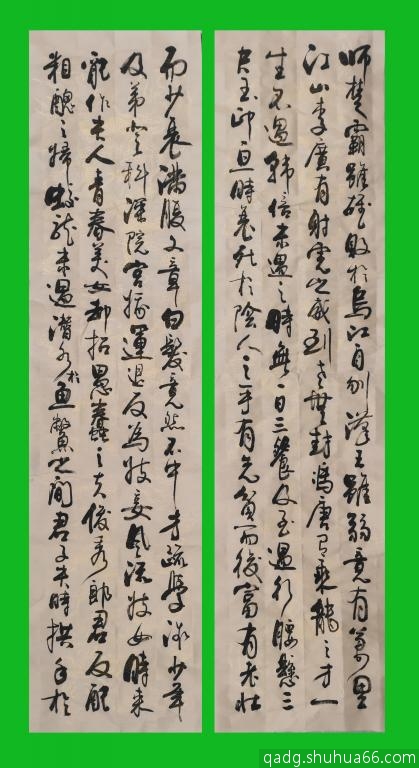 师楚霸雖雄敗於烏江自刎漢王雖弱竟有萬里
江山李廣有射虎之威到老無封馮唐有乘龍之才一
生不遇韩信未遇之時無一日三餐及至遇行腰懸三
尺玉印一旦時衰死於陰人之手有先貧而後富有老壯
而少衰滿腹文章白髮竟然不中才疏學淺少年
及第登科深院宫娥運退反為妓妾風流妓女時来
配作夫人青春美女却招愚蠢之夫俊秀郎君反配
粗醜之婦蛟龍未遇潛水於魚鱉之間君子失時拱手於
qadg.shuhua66.com